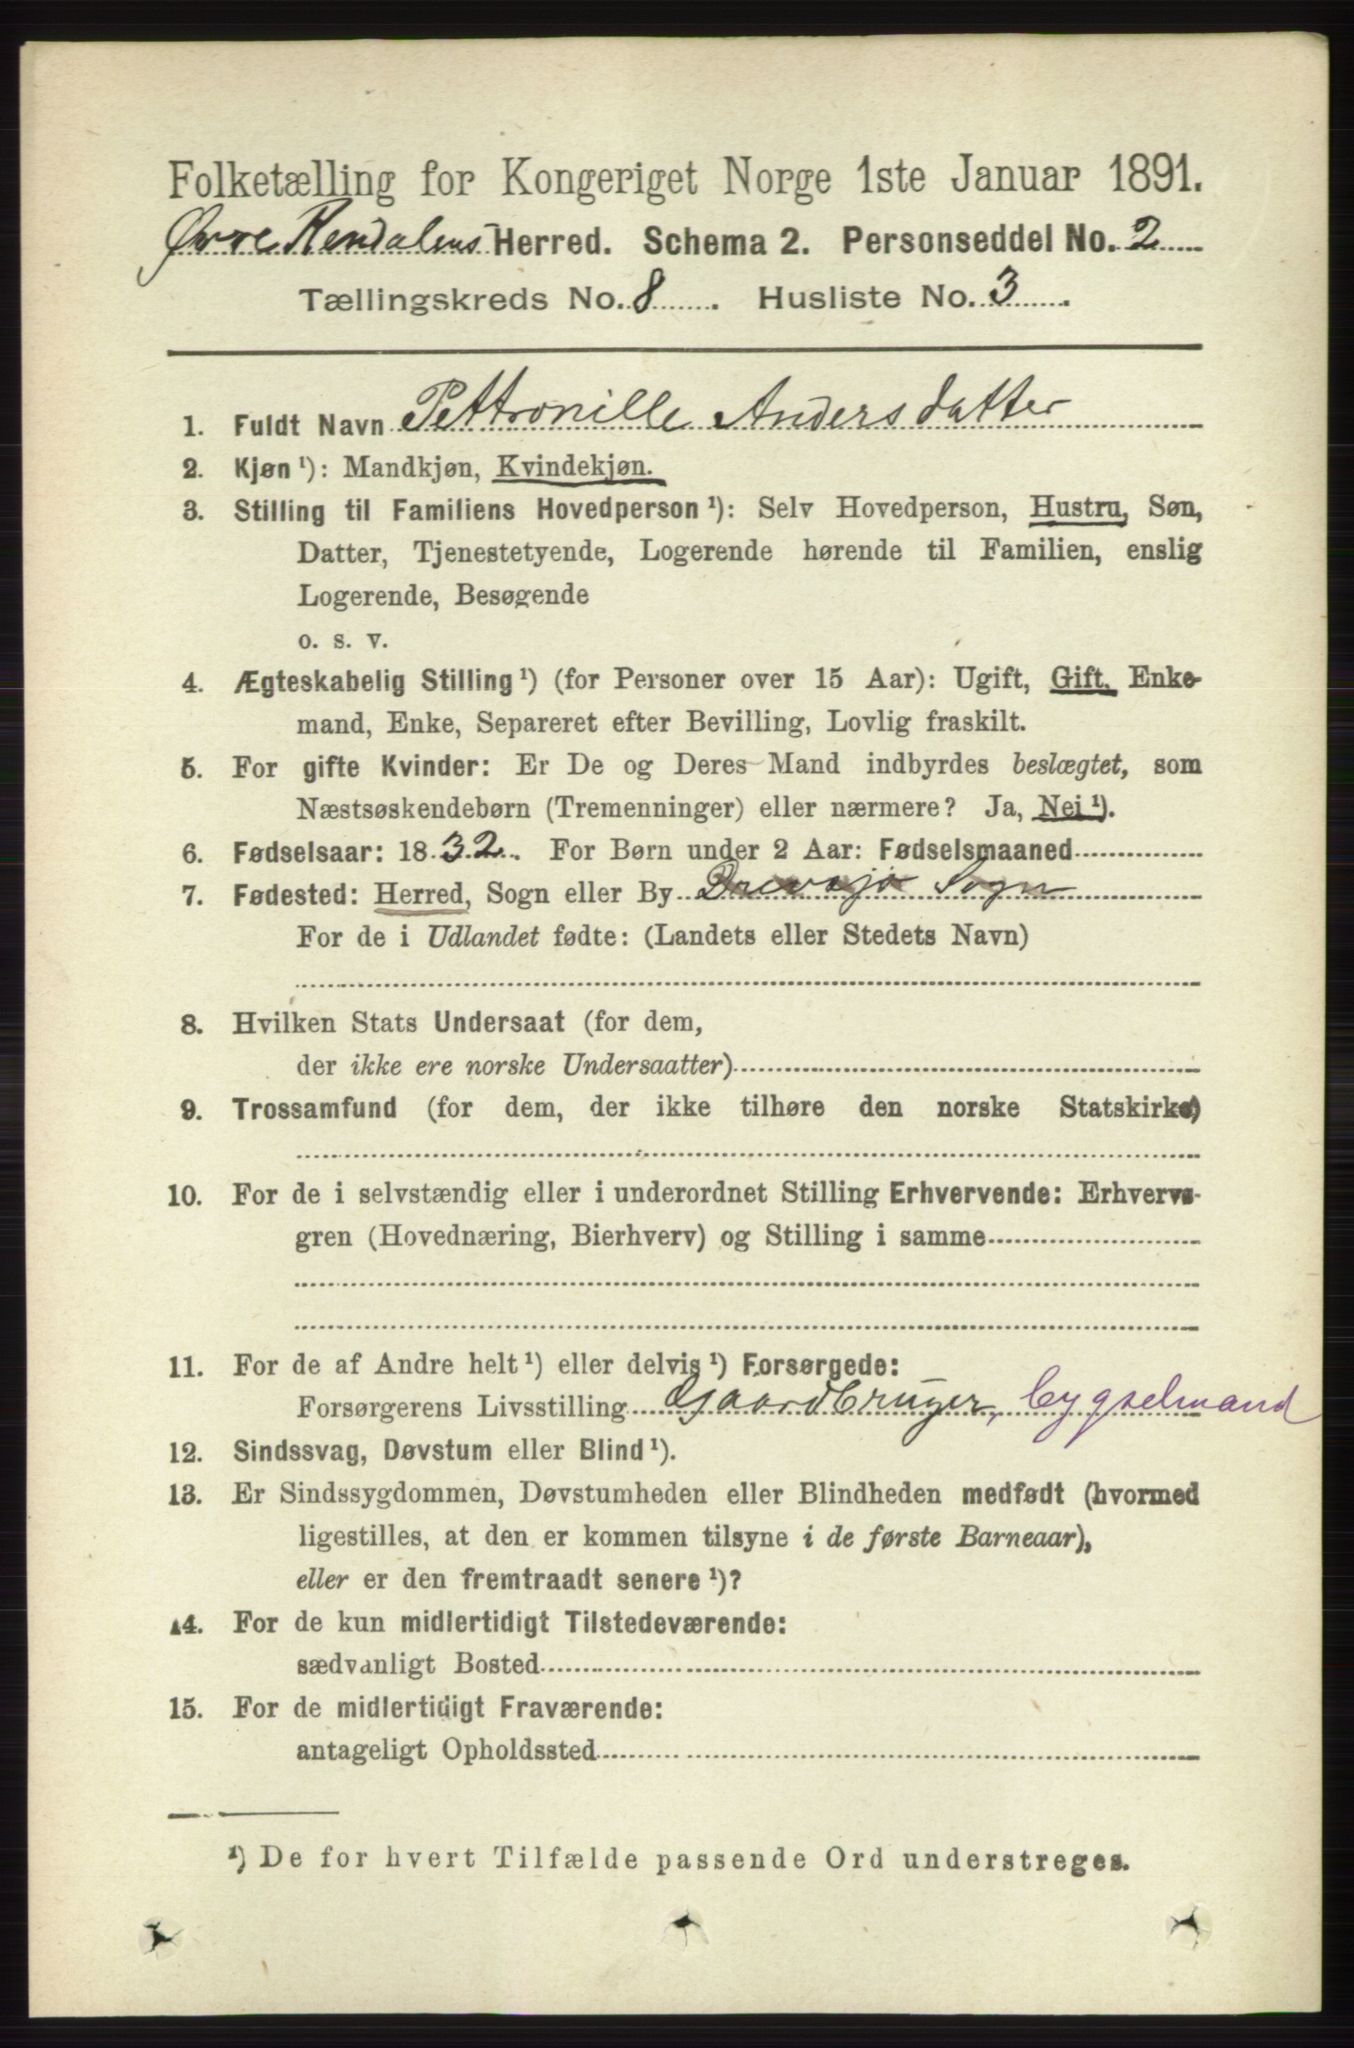 Folketælling for Kongeriget Norge 1ste Januar 1891.
Øvre Rendalens Herred. Schema 2. Personseddel No. 2
Tællingskreds No. 8. Husliste No. 3.
1. Fuldt Navn Pettronille Andersdatter
2. Kjøn ¹): Mandkjøn, Kvindekjøn.
3. Stilling til Familiens Hovedperson ¹): Selv Hovedperson, Hustru, Søn,
Datter, Tjenestetyende, Logerende hørende til Familien, enslig
Logerende, Besøgende
o. s. v.
4. Ægteskabelig Stilling ¹) (for Personer over 15 Aar): Ugift, Gift, Enke-
mand, Enke, Separeret efter Bevilling, Lovlig fraskilt.
5. For gifte Kvinder: Er De og Deres Mand indbyrdes beslægtet, som
Næstsøskendebørn (Tremenninger) eller nærmere? Ja, Nei ¹).
6. Fødselsaar: 1832. For Børn under 2 Aar: Fødselsmaaned
7. Fødested: Herred, Sogn eller By Drevsjø Sogn
For de i Udlandet fødte: (Landets eller Stedets Navn)
8. Hvilken Stats Undersaat (for dem,
der ikke ere norske Undersaatter)
9. Trossamfund (for dem, der ikke tilhøre den norske Statskirke)
10. For de i selvstændig eller i underordnet Stilling Erhvervende: Erhvervs-
gren (Hovednæring, Bierhverv) og Stilling i samme
11. For de af Andre helt ¹) eller delvis ¹) Forsørgede:
Forsørgerens Livsstilling Gaardbruger, bygselmand
12. Sindssvag, Døvstum eller Blind ¹).
13. Er Sindssygdommen, Døvstumheden eller Blindheden medfødt (hvormed
ligestilles, at den er kommen tilsyne i de første Barneaar),
eller er den fremtraadt senere ¹)?
14. For de kun midlertidigt Tilstedeværende:
sædvanligt Bosted
15. For de midlertidigt Fraværende:
antageligt Opholdssted
¹) De for hvert Tilfælde passende Ord understreges.